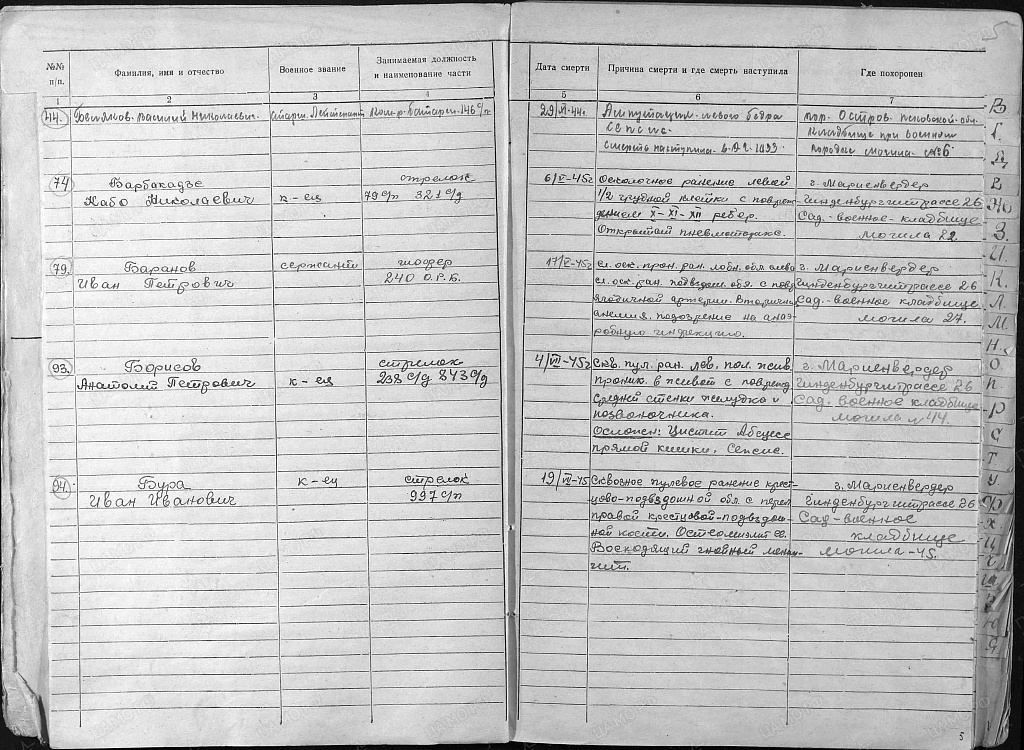 №№ п/п.
Фамилия, имя и отчество
Военное звание
Занимаемая должность
и наименование части
Дата смерти
Причина смерти и где смерть наступила
Где похоронен
1
2
3
4
5
6
7
44.
Василий Николаевич.
Старш. Лейтенант
Ком-р. батареи. 146 с/п
29/VI-44г.
Ампутация левого бедра
Сепсис.
Смерть наступила. в
гор. Остров. Псковской обл.
Кладбище при военном
городке могила №6
74
Барбакадзе
Набо Николаевич
к-ец
стрелок
79 с/п 321 с/д
6/V-45г
Осколочное ранение левой
1/2 грудной клетки с повреж-
дением X-XI-XII ребер.
Открытый пневмоторакс.
г. Мариенвердер
Гинденбургштрассе 26
Сад.-военное-кладбище
могила 22.
79.
Баранов
Иван Петрович
сержант
шофер
240 О.Р.Б.
17/V-45г
сл. оск. прон. ран. лобн. обл. слева
сл. оск. ран. подвздош. обл. с повр
ягодичной артерии. Вторичн.
анемия. подозрение на анаэ-
робную инфекцию.
г. Мариенвердер
Гинденбургштрассе 26
Сад-военное кладбище
могила 27.
93.
Борисов
Анатолий Петрович
к-ец
стрелок
238 с/д 843 с/д
4/VII-45г
Скв. пул. ран. лев. пол. жив.
проник. в живот с поврежд
средней стенки желудка и
позвоночника.
Осложен: Цистит Абсцесс
прямой кишки. Сепсис.
г. Мариенвердер
Гинденбургштрассе 26
Сад. военное кладбище
могила № 44.
94.
Бура
Иван Иванович
к-ец
стрелок
997 с/п
19/VII-45
Сквозное пулевое ранение крест-
цово-подвздошной обл. с перел
правой крестцовой-подвздош-
ной кости. Остеомиэлит ее.
Восходящий гнойный менин-
гит.
г. Мариенвердер
Гинденбургштрассе 26
Сад-военное
кладбище
могила-45.
В
Г
Д
Е
Ж
З.
И.
К.
Л
М
Н.
О
П
Р
С
Т
У.
Ф
Х
Ц
Ч
Ш
Э
Ю
Я
5